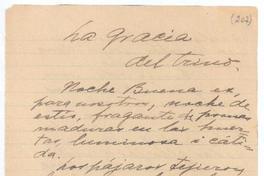 (202)
La gracia
del trino.
Noche Buena es,
para nosotros, noche de
estío, fragante de pomas
maduras en las huer-
tas, luminosa i cáli-
da.
Los pájaros tejieron